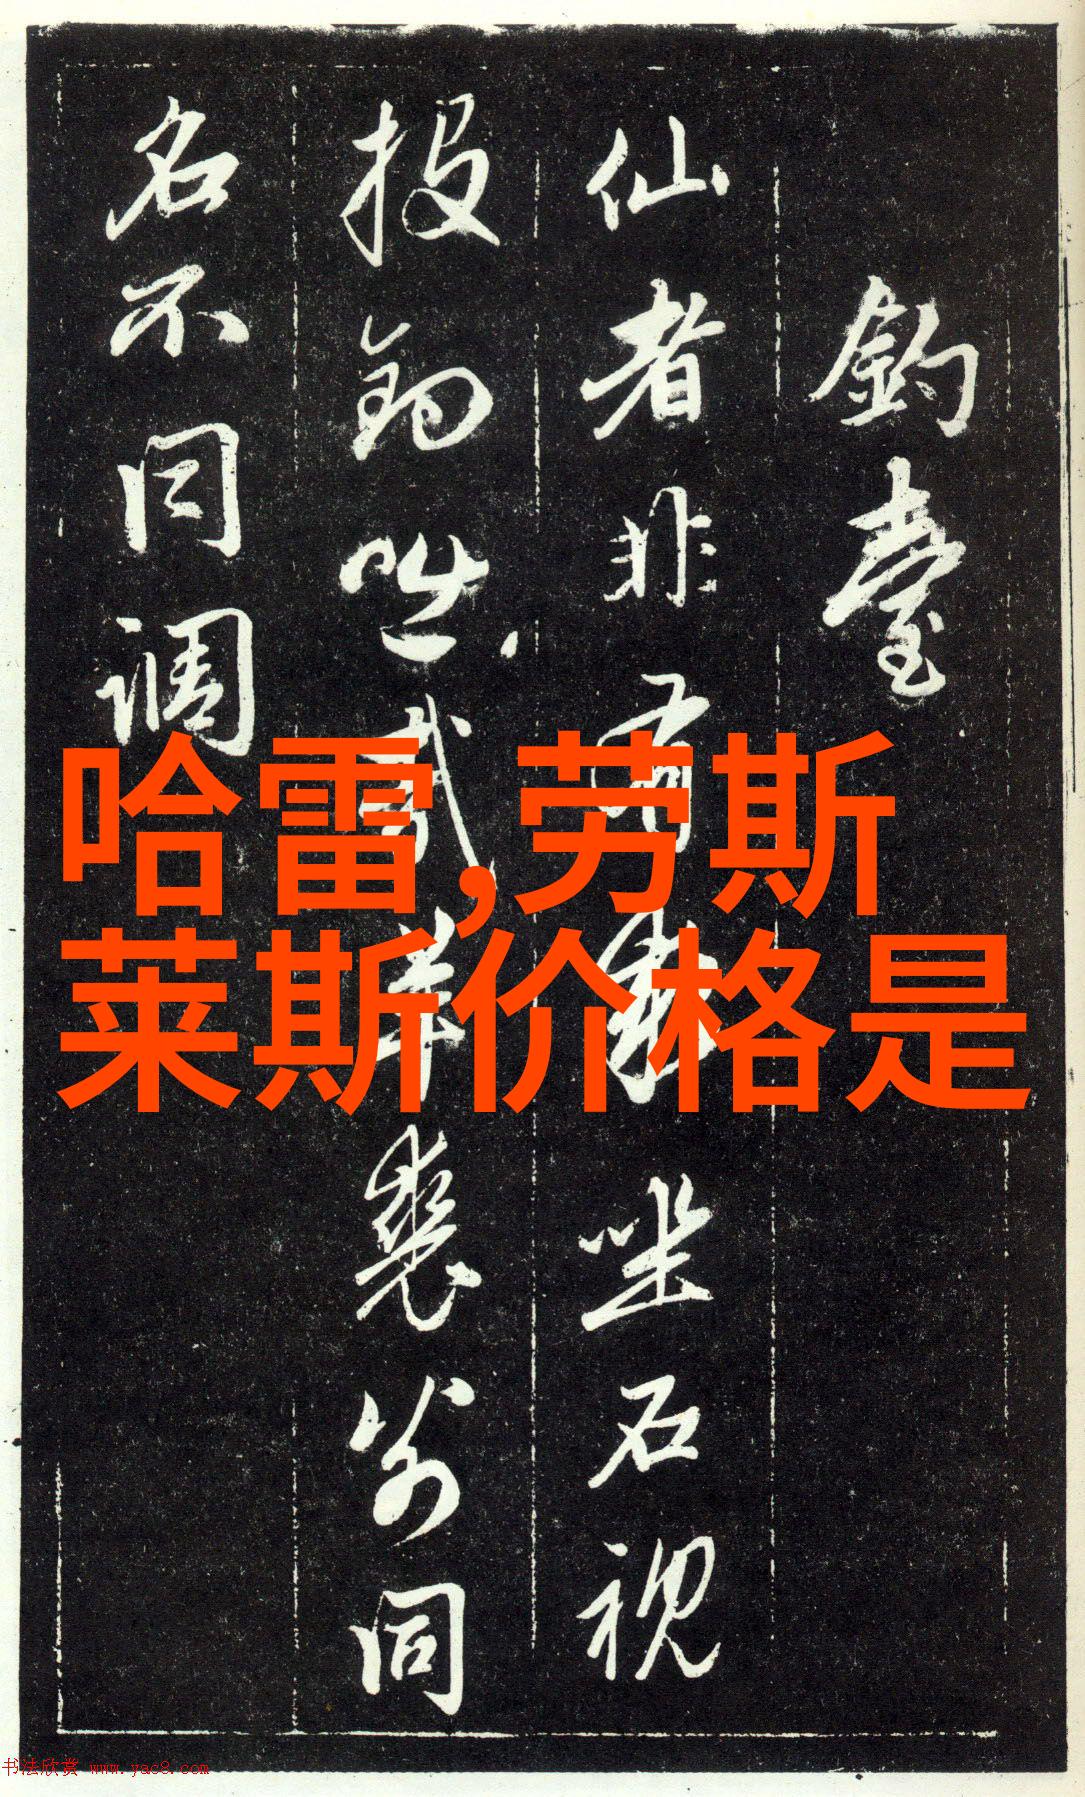 釣臺
仙者非 坐石視
投鈎咄哉 羊裘 同
名不同調
哈雷,劳斯
莱斯价格是
书法欣赏 www.yac8.com